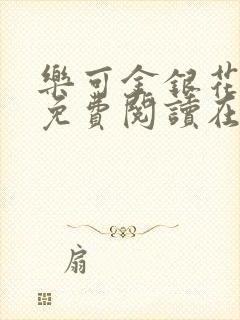 樂可金銀花
免費閱讀在
扇